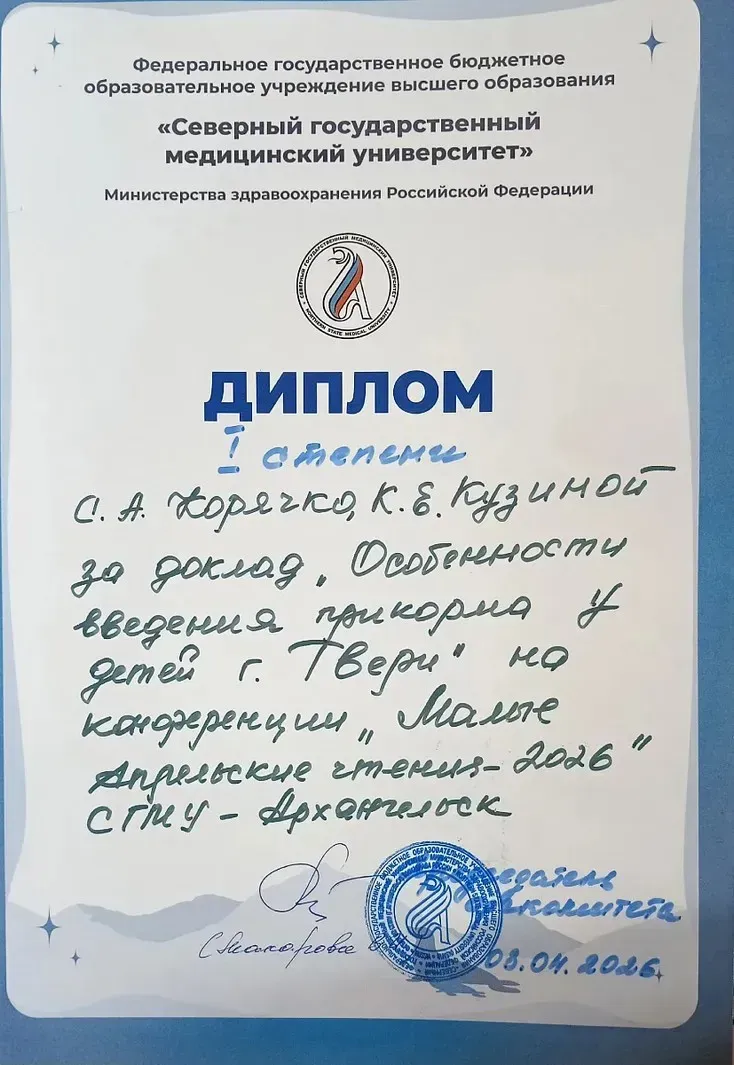 Федеральное государственное бюджетное
образовательное учреждение высшего образования
«Северный государственный
медицинский университет»
Министерства здравоохранения Российской Федерации
СЕВЕРНЫЙ ГОСУДАРСТВЕННЫЙ МЕДИЦИНСКИЙ УНИВЕРСИТЕТ
NORTHERN STATE MEDICAL UNIVERSITY
ДИПЛОМ
I степени
С. А. Корячко, К. Е. Кузиной
за доклад „Особенности
введения прикорма у
детей г. Твери" на
конференции „Малые
Апрельские чтения-2026"
СГМУ - Архангельск
03.04.2026